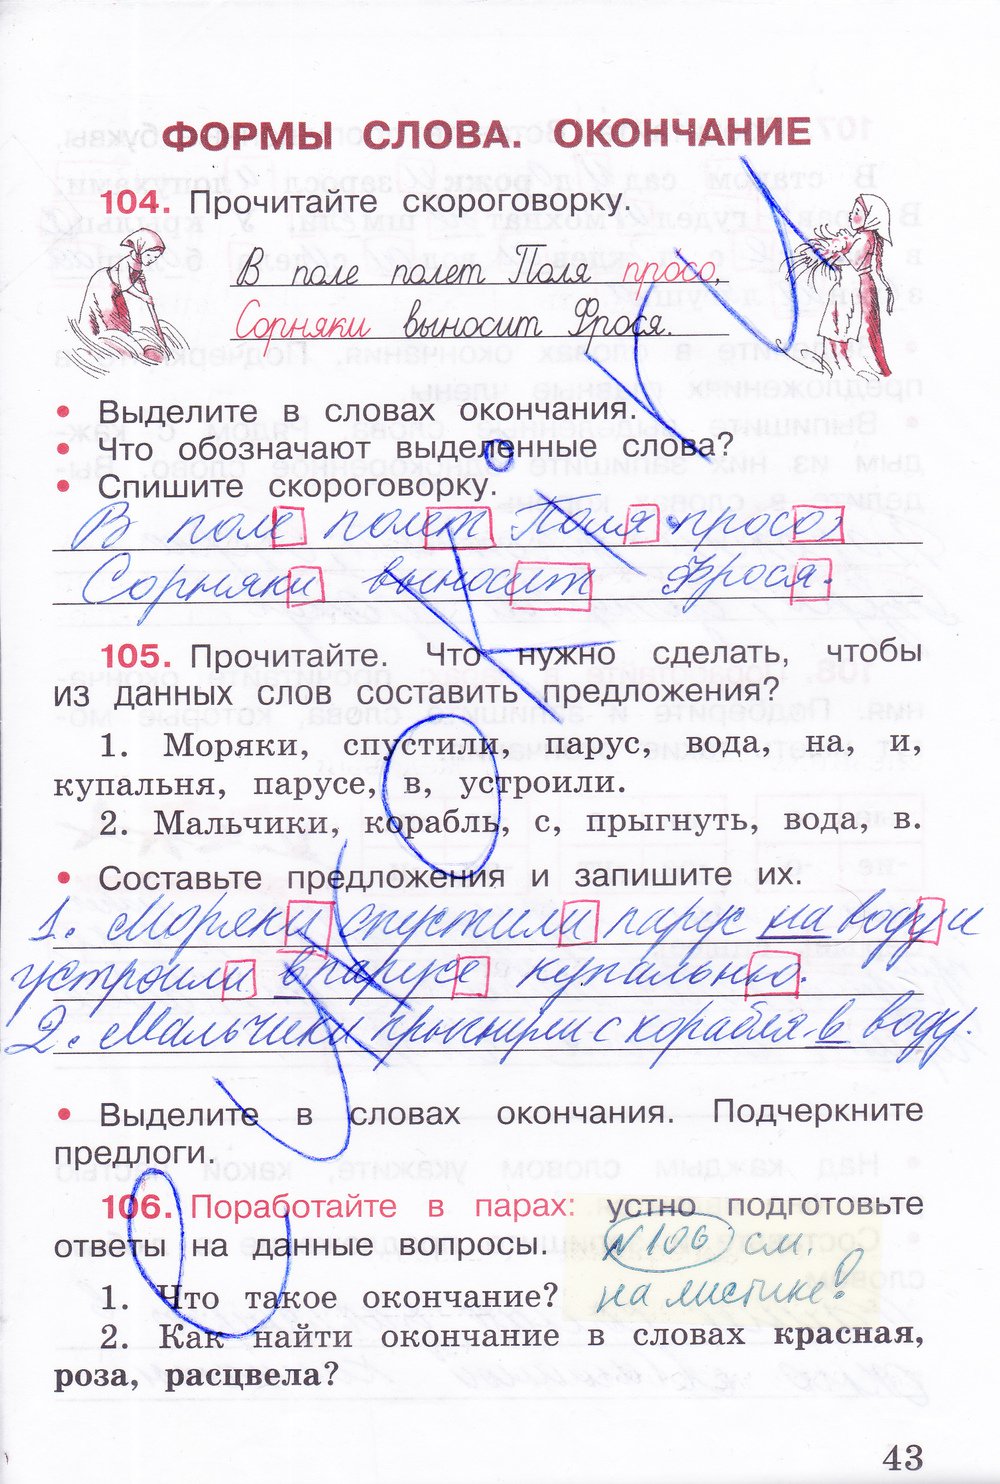 ФОРМЫ СЛОВА. ОКОНЧАНИЕ
104. Прочитайте скороговорку.
В поле полет Поля просо,
Сорняки выносит Фрося.
• Выделите в словах окончания.
• Что обозначают выделенные слова?
• Спишите скороговорку.
В поле полет Поля просо,
Сорняки выносит Фрося.
105. Прочитайте. Что нужно сделать, чтобы
из данных слов составить предложения?
1. Моряки, спустили, парус, вода, на, и,
купальня, парусе, в, устроили.
2. Мальчики, корабль, с, прыгнуть, вода, в.
• Составьте предложения и запишите их.
1. Моряки спустили парус на воду и
устроили в парусе купальню.
2. Мальчики прыгнули с корабля в воду.
• Выделите в словах окончания. Подчеркните
предлоги.
106. Поработайте в парах: устно подготовьте
ответы на данные вопросы.
№106 см.
на листике!
1. Что такое окончание?
2. Как найти окончание в словах красная,
роза, расцвела?
43